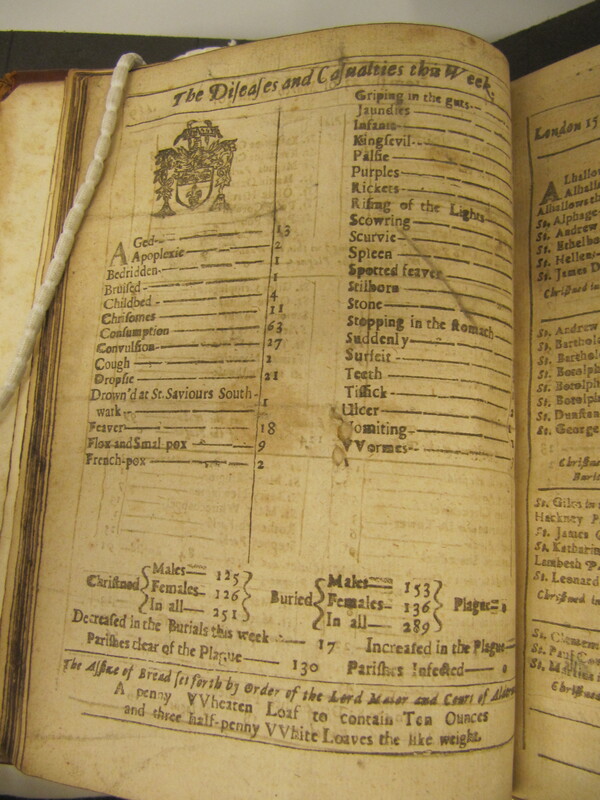 The Diſeaſes and Caſualties this Week.
AGed 13
Apoplexie 2
Bedridden 1
Bruiſed 1
Childbed 4
Chriſomes 11
Conſumption 63
Convulſion 27
Cough 2
Dropſie 21
Drown'd at St. Saviours South-
wark 1
Feaver 18
Flox and Smal pox 9
French-pox 2
Griping in the guts
Jaundies
Infants
Kingſevil
Palſie
Purples
Rickets
Riſing of the Lights
Scowring
Scurvie
Spleen
Spotted feaver
Stilborn
Stone
Stopping in the ſtomach
Suddenly
Surfeit
Teeth
Tiſſick
Ulcer
Vomiting
VVormes
Chriſtned Males 125 Females 126 In all 251
Buried Males 153 Females 136 In all 289
Plague 0
Decreaſed in the Burials this week 17
Increaſed in the Plague
Pariſhes clear of the Plague 130
Pariſhes Infected 0
The Aſſize of Bread ſet forth by Order of the Lord Maior and Court of
A penny VVheaten Loaf to contain Ten Ounces
and three half-penny VVhite Loaves the like weight.
London 15
St. Alphage
St. Andrew
St. Hellen
St. James D
Chriſtned in
St. Andrew
St. Barthol
St. Barthol
St. Botolph
St. Botolph
St. Botolph
St. Dunſtan
St. George
Chriſtned
St. Giles in
Hackney P
St. James
St. Katharin
Lambeth P
St. Leonard
Chriſtned in
St. Clemen
St. Paul
St. Martin
Chriſtned